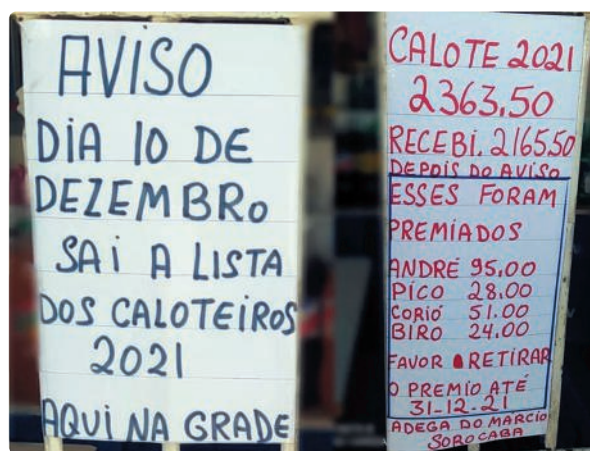 AVISO
DIA 10 DE
DEZEMBRO
SAI A LISTA
DOS CALOTEIROS
2021
AQUI NA GRADE
CALOTE 2021
2363,50
RECEBI. 2165,50
DEPOIS DO AVISO
ESSES FORAM
PREMIADOS
ANDRÉ 95,00
PICO 28,00
CORIÓ 51,00
BIRO 24,00
FAVOR RETIRAR
O PREMIO ATÉ
31-12-21
ADEGA DO MARCIO
SOROCABA